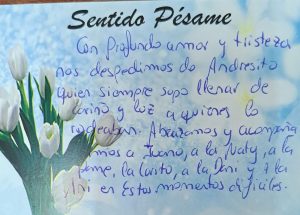 Sentido Pésame
Con profundo amor y tristeza
nos despedimos de Andresito
quien siempre supo llenar de
cariño y luz a quienes lo
rodeaban. Abrazamos y acompaña
mos a Juano, a la Naty, a la
la Carito, a la Dani y a la
Ani en Estos momentos difíciles.